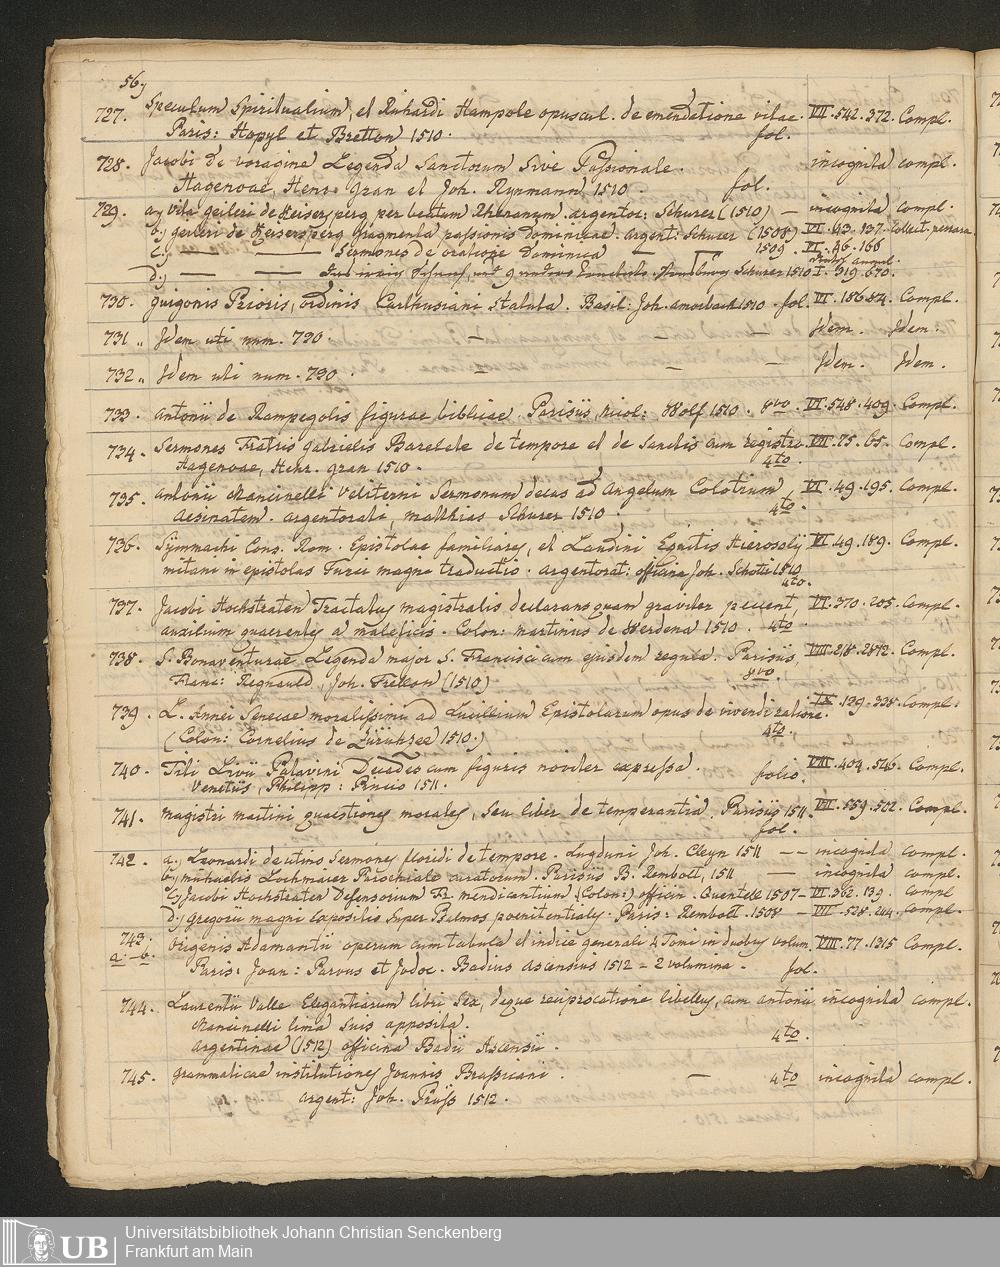 56,
727. Speculum Spiritualium, et Richardi Hampole opuscul. de emendatione vitae. VII. 542. 372. Compl.
Paris: Hopyl et Bretton 1510. fol.
728. Jacobi de voragine Legenda Sanctorum Sive Passionale. incognita compl.
Hagenoae, Henr. Gran et Joh. Rynmann 1510. fol.
729. a, vita geileri de Keisersperg per beatum Rhenanum. argentor: Schurer (1510) — incognita compl.
b, geileri de Keisersperg fragmenta passionis dominicae. argent: Schurer (1508) VI. 43. 137. Collect.
c, — — Sermones de oratione dominica — 1509. VI. 46. 160
d, — — Schurer 1510 I. 319. 670.
730. guigonis Prioris, ordinis Carthusiani Statuta. Basil: Joh. amorbach 1510. fol. VI. 186. 84. Compl.
731 „ Idem uti num. 730. — — — Idem. Idem.
732 „ Idem uti num. 730. — — — Idem. Idem.
733. antonii de Rampegolis figurae bibliae. Parisiis, nicol: Wolf 1510. 8vo. VI. 548. 409. Compl.
734. Sermones Fratris gabrielis Barelete de tempore et de Sanctis cum registro. VII. 75. 65. Compl.
Hagenoae, Henr. gran 1510. 4to.
735. antonii Mancinelli Veliterni Sermonum decas ad Angelum Colotium VI. 49. 195. Compl.
Aesinatem. argentorati, matthias Schurer 1510 4to.
736. Symmachi Cons. Rom. Epistolae familiares, et Laudini Equitis Hierosoly VI. 49. 189. Compl.
mitani in epistolas Turci magni traductio. argentorat: officina Joh. Schotti 1510
4to.
737. Jacobi Hochstraten Tractatus magistralis declarans quam graviter peccent, VI. 370. 205. Compl.
auxilium quaerentes a maleficis. Colon: martinus de Werdena 1510. 4to
738. S. Bonaventurae Legenda major S. Francisci cum ejusdem regula. Parisiis VIII. 218. 2872. Compl.
Franc: Regnauld, Joh. Frellon (1510) 8vo.
739. L. Annei Senecae moralissimi ad Lucillium Epistolarum opus de vivendi ratione. IX. 129. 338. Compl.
(Colon: Cornelius de Zürichzee 1510.) 4to.
740. Titi Livii Patavini Decades cum figuris noviter expressa. folio. VIII. 404. 546. Compl.
Venetiis, Philipp: Pincio 1511.
741. magistri martini quaestiones morales, seu liber de temperantia. Parisiis 1511. VIII. 559. 502. Compl.
fol.
742. a., Leonardi de utino Sermones floridi de tempore. Lugduni Joh. Cleyn 1511 — — incognita compl.
b, michaelis Lochmaier Parochiale curatorum. Parisiis B. Rembolt, 1511 — incognita compl.
c, Jacobi Hochstraten Defensorium Fr. mendicantium (Colon:) officin. Quentell 1507 — VI. 362. 139. Compl
d, gregorii magni Expositio super Psalmos poenitentiales. Paris: Rembolt. 1508 — VIII. 528. 244. Compl.
743. origenis Adamantii operum cum tabula et indice generali 4 Tomi in duobus volum. VIII. 77. 1315 Compl.
a. — b. Paris: Joan: Parvus et Jodoc. Badius Ascensius 1512 — 2 volumina. fol.
744. Laurentii Valle Elegantiarum libri Sex, deque reciprocatione libellus, cum antonii incognita compl.
Mancinelli lima suis apposita.
argentinae (1512) officina Badii Ascensii. 4to.
745. grammaticae institutiones Joannis Brassicani. — 4to incognita compl.
argent: Joh. Prüss 1512.
Universitätsbibliothek Johann Christian Senckenberg
Frankfurt am Main
UB